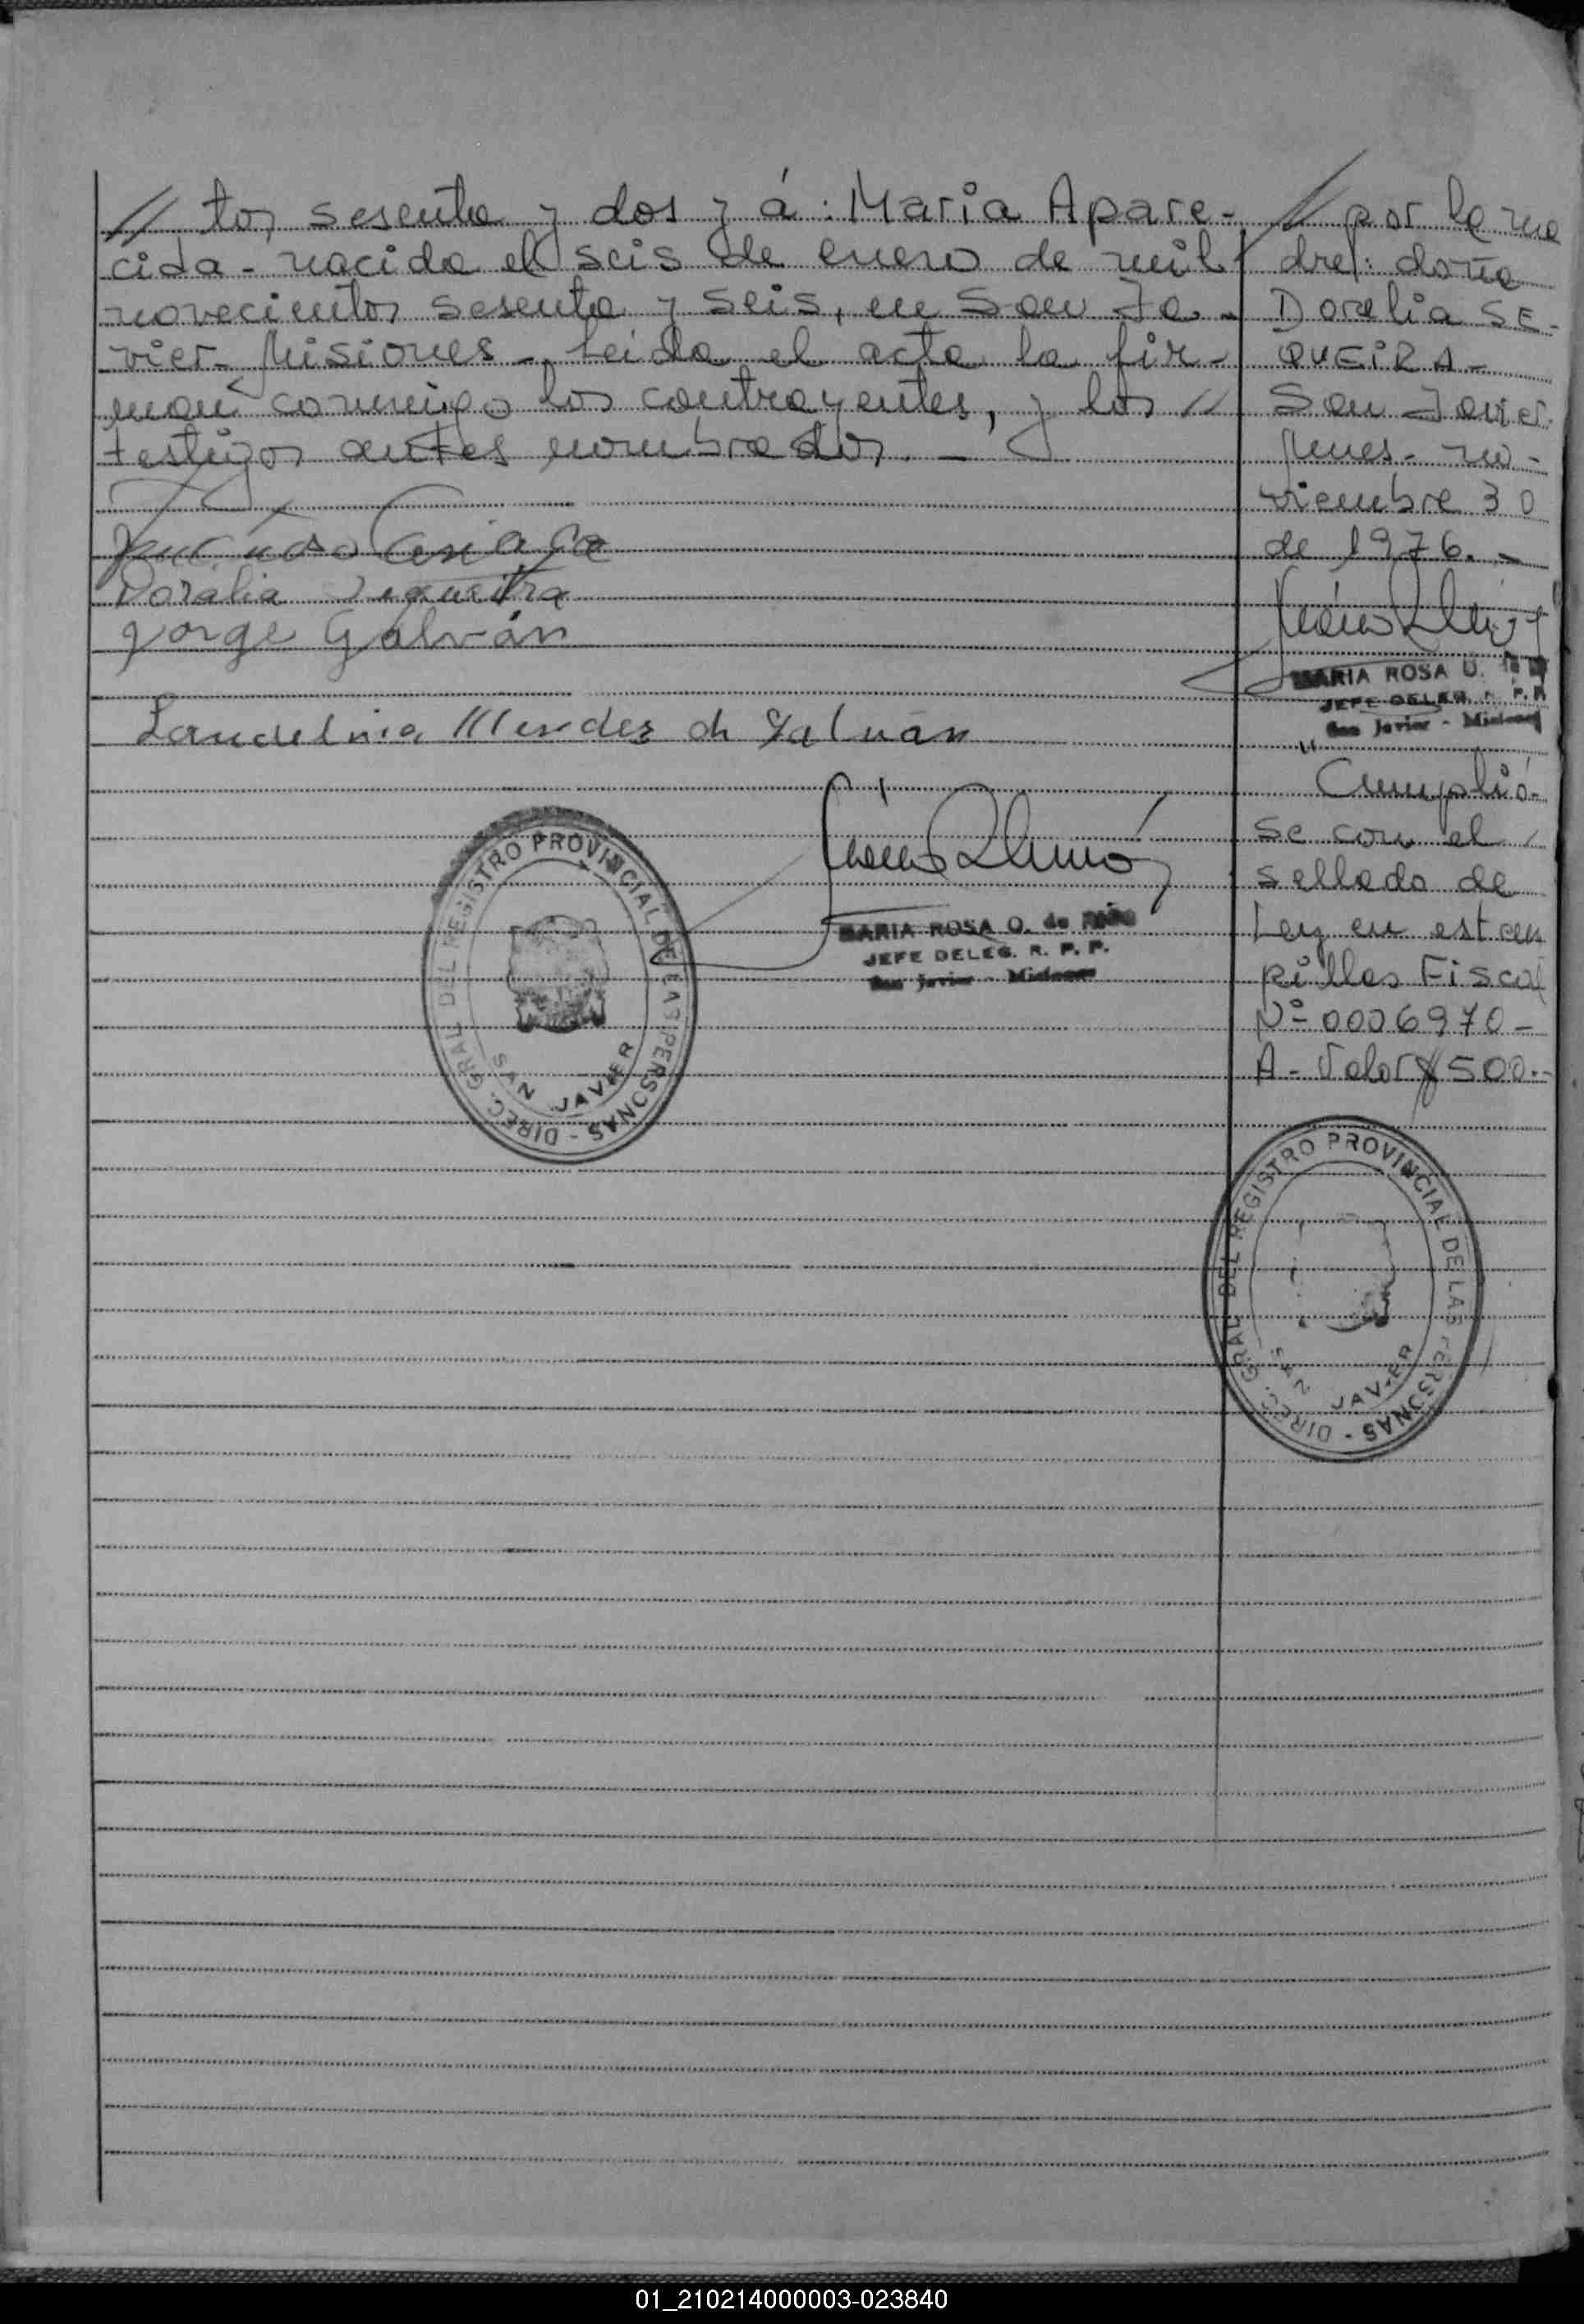 // tos sesenta y dos y á: Maria Apare-
cida - nacida el seis de enero de mil
novecientos sesenta y seis, en San Ja-
vier - Misiones - Leida el acta la fir-
man conmigo los contrayentes, y los //
testigos antes nombrados. -
Doralia Sequeira
Jorge Galván
Laudelnia Mendez de Galván
MARIA ROSA O. de
JEFE DELEG. R. P. P.
San Javier - Misiones
DIREC. GRAL DEL REGISTRO PROVINCIAL DE LAS PERSONAS -
SAN JAVIER
// por la ma
dre: doña
Dorelia SE-
QUEIRA -
San Javier
Mnes - no-
viembre 30
de 1976. -
MARIA ROSA O.
JEFE DELEG. R. P. P.
San Javier - Misiones
Cumplió-
se con el
sellado de
Ley en estam
pillas Fiscal
Nº 0006970 -
A - Valor $ 500.-
DIREC. GRAL DEL REGISTRO PROVINCIAL DE LAS PERSONAS -
SAN JAVIER
01_210214000003-023840